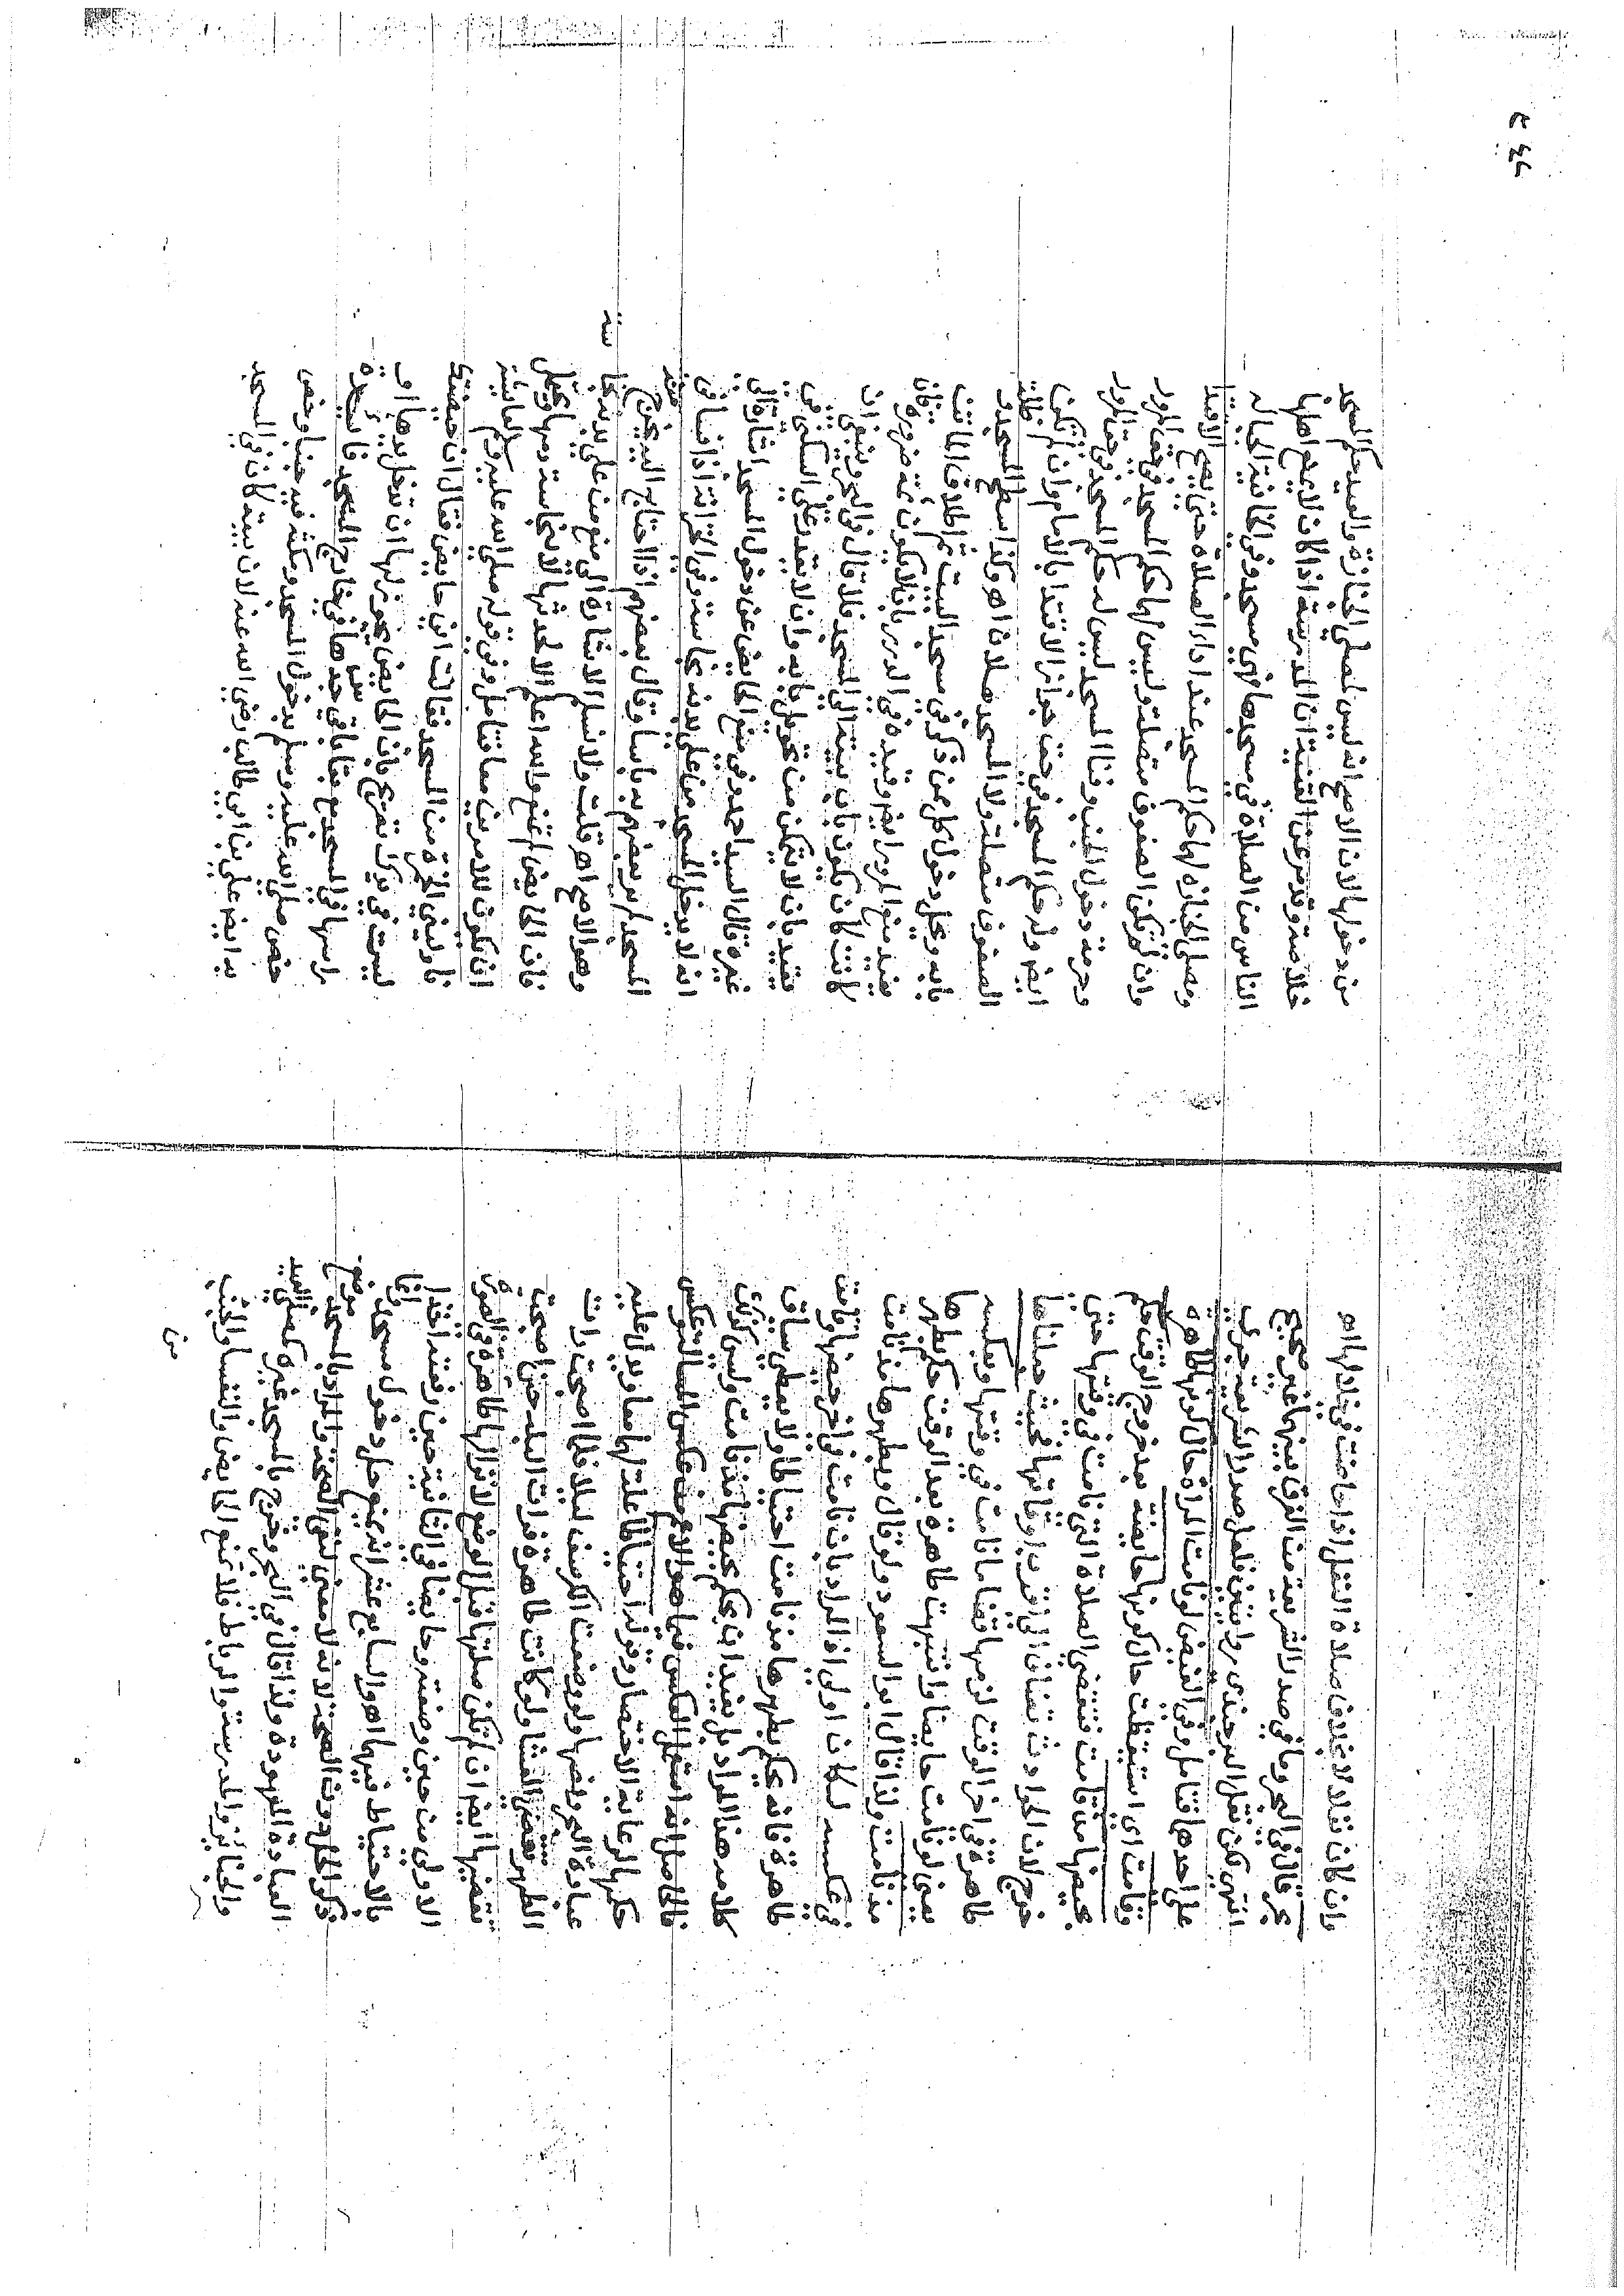 وان كان نفلا لا بخلاف صلاة النفل اذا حاضت في خلالها اه
بحر قال في البحر وما في صدر الشريعة من الفرق بينهما غير صحيح
انتهى لكن نقل البرجندى روايتين فلعل صدر الشريعة جرى
على احدها فتامل وفي الفيض لو نامت المراة حال كونها طاهرة
وقامت اى استيقظت حال كونها حايضة بعد خروج الوقت حكم
بحيضها من قامت فتقضي الصلاة التى نامت في وقتها حتى
خرج لان الحوادث تضاف الى اقرب اوقاتها فحيث
طاهرة في اخر الوقت لزمها قضا ما نامت في وقتها وبعكسه
يعنى لو نامت حايضا وانتبهت طاهرة بعد الوقت حكم بطهرها
مذ نامت ولذا قال ابو السعود ولو قال وبطهرها مذ نامت
في عكسه لكان اولى اذ المراد بان نامت في اخر حيضها وقامت
طاهرة فانه يحكم بطهرها مذ نامت احتياطا ولا يعطى سياق
كلامه هذا المراد بل يفيد ان يحكم بحيضها مذ نامت وليس كذلك
فالحاصل انه استعمل العكس فيما هو الاعم من عكس وعكس
حكمها لرعاية الاختصار وقوله احتياطا علة لهما معا ويدل عليه
عبارة البحر ونصها ولو وضعت الكرسف ليلا فلما اصبحت رات
الطهر تقضي العشا ولو كانت طاهرة فرات البلة حين اصبحت
تقضيها ايضا ان لم تكن صلتها قبل الوضع لانزالها طاهرة في الصورة
الاولى من حين وضعته وحايضا في الثانية حين رفعته اخذا
بالاحتياط فيهما اه والسابع عشر انه يمنع حل دخول مسجد
ذكر الحل دون الصحة لانه لا معنى لنفي الصحة والمراد بالمسجد موضع
العبادة المعهودة ولذا قال في البحر وخرج بالمسجد غيره كمصلى العيد
والجنايز والمدرسة والرباط فلا يمنع الحايض والنفسا والجنب
من
من دخولها لان الاصح انه ليس لمصلى الجنازة والعيد حكم المسجد
خلاصة وقدم عن القنية ان المدرسة اذا كان لا يمنع اهلها
الناس من الصلاة في مسجدها فهي مسجد وفي الخانية الجبانة
ومصلى الجنازه لها حكم المسجد عند اداء الصلاة حتى يصح الاقتدا
وان لم تكن الصفوف متصلة وليس لها حكم المسجد في حق المرور
وحرمة دخول الجنب وفنا المسجد ليس له حكم المسجد في حق المرور
ايض وله حكم المسجد في حق جواز الاقتدا بالامام وان لم تكن
الصفوف متصلة ولا المسجد ملانا اه وكذا سطح المسجد وظلة
بابه ومحل دخول كل من ذكر في مسجد البيت ثم اطلاق المانت
يفيد منع المرور ايض وقيده في الدرر بان لا يكون عن ضرورة فان
كانت كان يكون باب بيته الى المسجد فلا قال في البحر وينبغي ان
يقيد بان لا يتمكن من تحويل بابه وان لا يقدر على السكنى في
غيره قال السيد احمد وفي منع الحايض عن دخول المسجد اشارة الى
انه لا يدخل المسجد من على بدنه نجاسة وفي الخزانة اذا فسا في
المسجد لم ير بعضهم به باسا وقال بعضهم اذا احتاج اليه يخرج منه
وهو الاصح اه قلت ولا نسلم الاشارة الى منع من على بدنه نجاسة
فان الحايض لم تمنع والله اعلم الا لحدثها لا نجاسة دمها ويحتمل
ان تكون للامرين معا فتامل وفي قوله صلى الله عليه وسلم لعائشة
ناوليني الخمرة من المسجد فقالت اني حايض فقال ان حيضتك
ليست في يدك تصريح بان الحايض يجوز لها ان تدخل يدها او
راسها في المسجد مع بقا باقي جسدها في خارج المسجد فائدة
خص صلى الله عليه وسلم بدخول المسجد ومكثه فيه جنبا وخص
به ايض علي بن ابي طالب رضي الله عنه لان بيته كان في المسجد